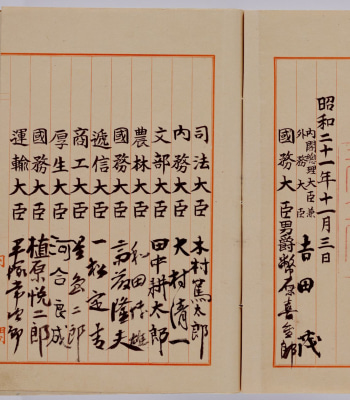 昭和二十一年十一月三日
内閣總理大臣兼
外務大臣 吉田茂
國務大臣 男爵 幣原喜重郎
司法大臣 木村篤太郎
内務大臣 大村清一
文部大臣 田中耕太郎
農林大臣 和田博雄
國務大臣 斎藤隆夫
遞信大臣 一松定吉
商工大臣 星島二郎
厚生大臣 河合良成
國務大臣 植原悦二郎
運輸大臣 平塚常次郎